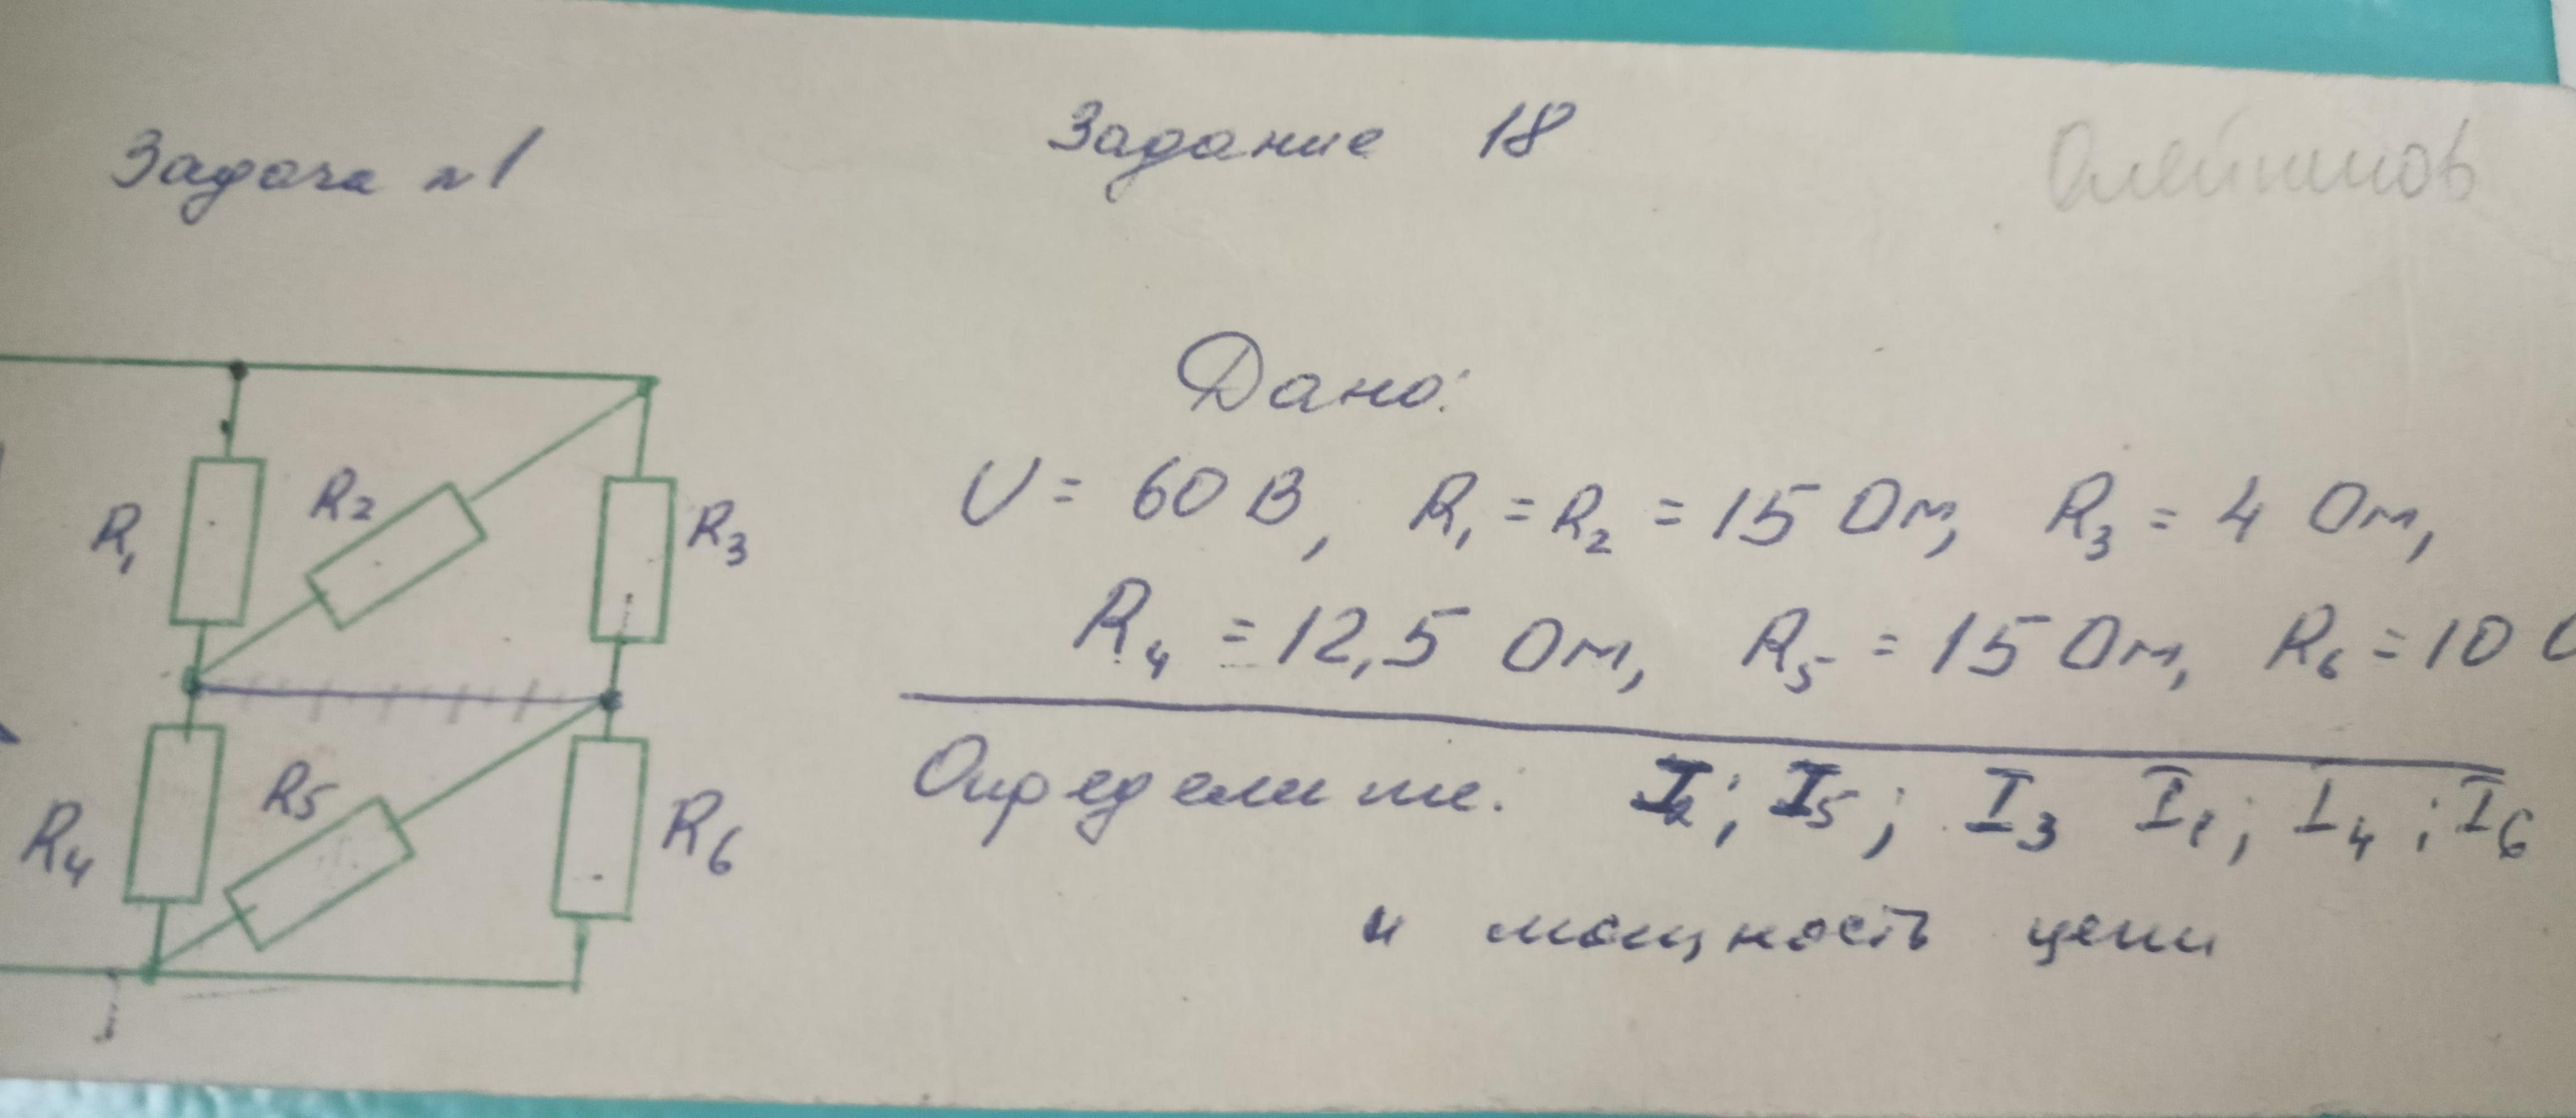 Задача №1
Задание 18
Олейников
Дано:
U = 60 В, R₁ = R₂ = 15 Ом, R₃ = 4 Ом,
R₄ = 12,5 Ом, R₅ = 15 Ом, R₆ = 10 О
Определите: I₂; I₅; I₃ I₁; I₄; I₆
и мощность цепи
R₁
R₂
R₃
R₄
R₅
R₆